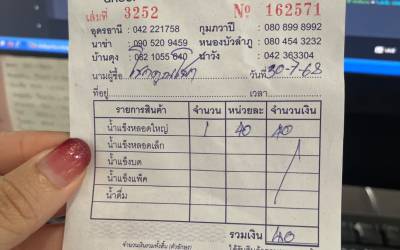 เล่มที่ 3252 Nº 162571
อุดรธานี : 042 221758 กุมภวาปี : 080 899 8992
นาข่า : 090 520 9459 หนองบัวลำภู : 080 454 3232
บ้านดุง : 062 1055 640 ซาวัง : 042 363304
นามผู้ซื้อ วันที่ 30-7-68
ที่อยู่ เวลา
รายการสินค้า จำนวน หน่วยละ จำนวนเงิน
น้ำแข็งหลอดใหญ่ 1 40 40
น้ำแข็งหลอดเล็ก
น้ำแข็งบด
น้ำแข็งแพ็ค
น้ำดื่ม
รวมเงิน 40
จำนวนเงินรวมทั้งสิ้น (ตัวอักษร)